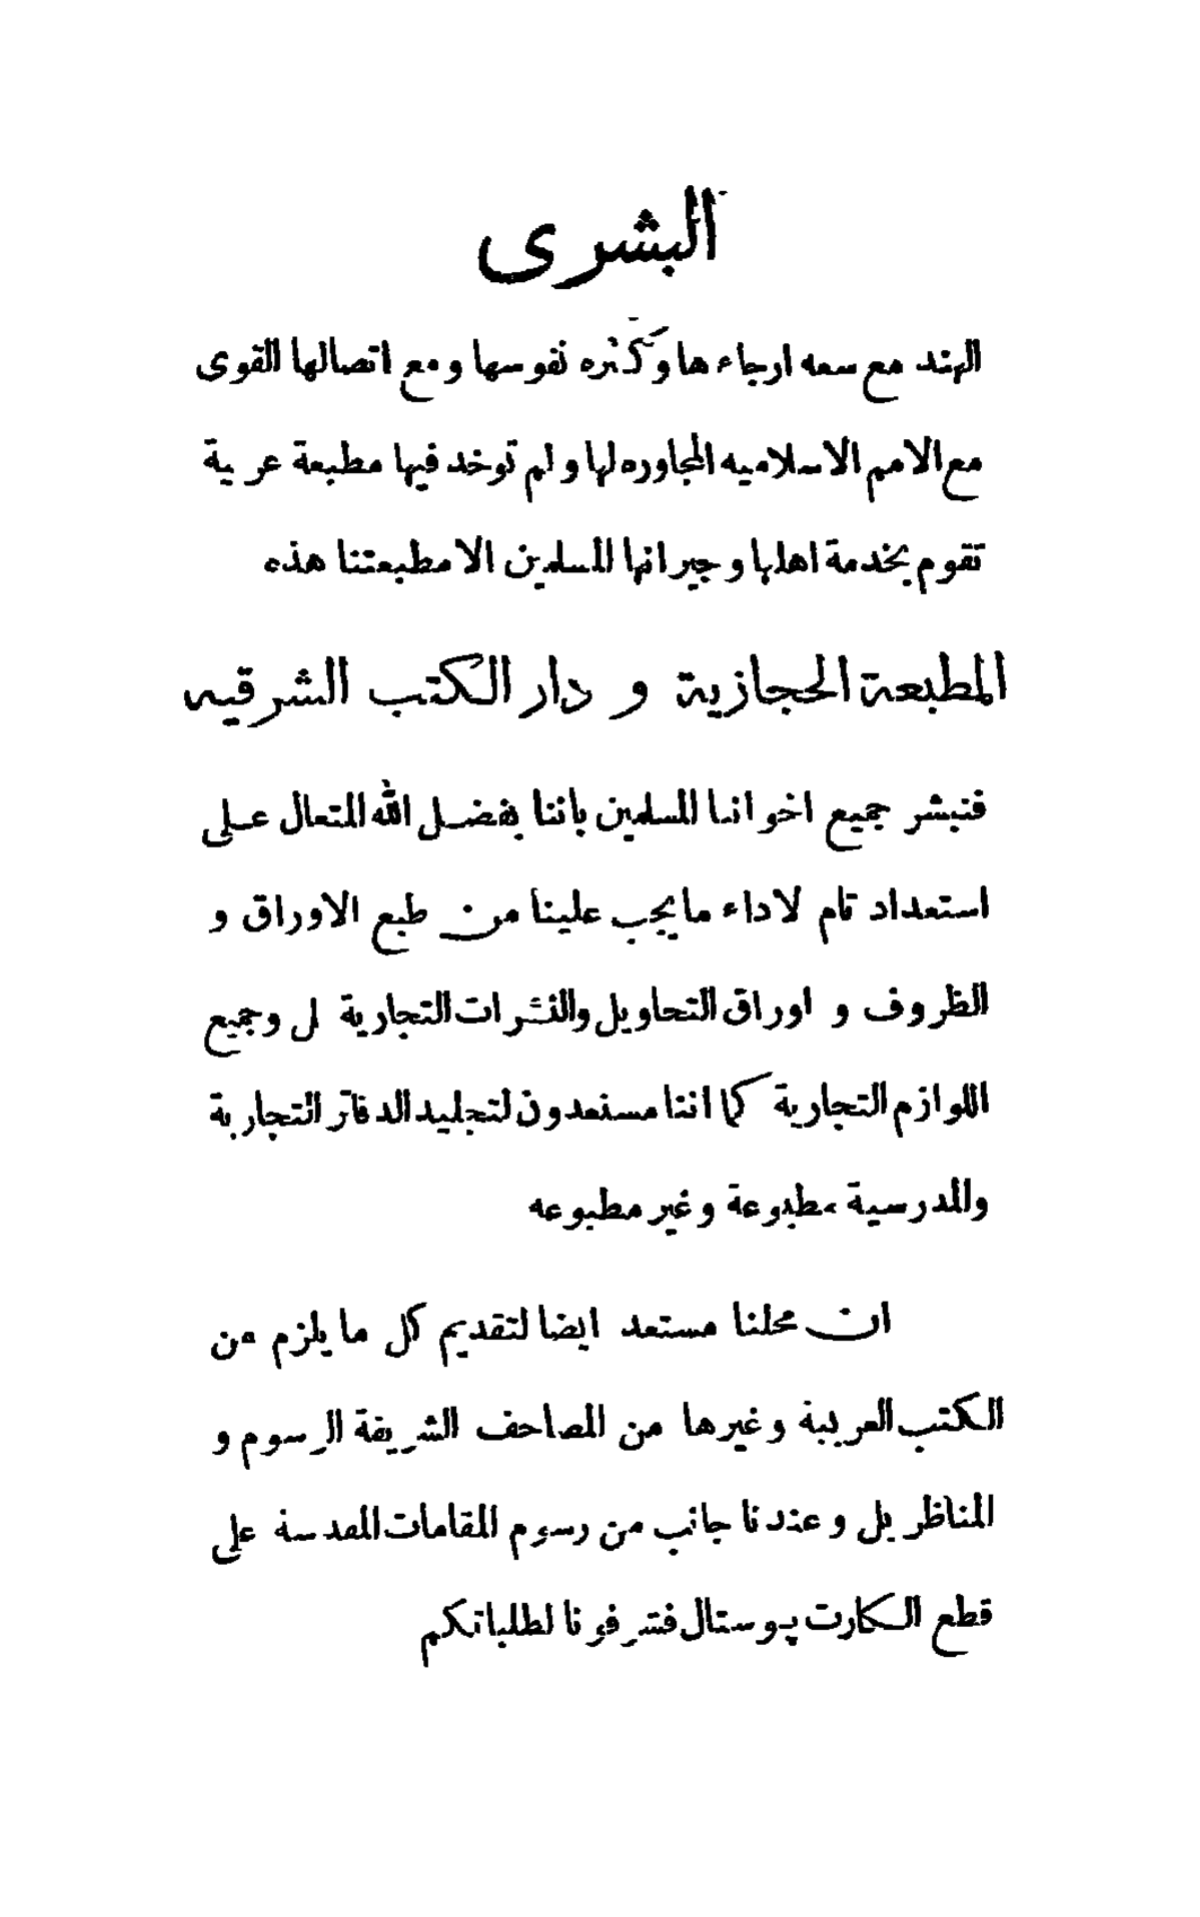 البشرى
الهند مع سعه ارجاء ها وكثره نفوسها و مع اتصالها القوى
مع الامم الاسلاميه المجاوره لها و لم توخد فيها مطبعة عربية
تقوم بخدمة اهلها و جيرانها المسلمين الا مطبعتنا هذه
المطبعة الحجازية و دار الكتب الشرقيه
فنبشر جميع اخواننا المسلمين باننا بفضل الله المتعال على
استعداد تام لاداء ما يجب علينا من طبع الاوراق و
الظروف و اوراق التحاويل والنشرات التجارية بل وجميع
اللوازم التجارية كما اننا مستعدون لتجليد الدفاتر التجارية
والمدرسية مطبوعة و غير مطبوعه
ان محلنا مستعد ايضا لتقديم كل ما يلزم من
الكتب العربية و غيرها من المصاحف الشريفة الرسوم و
المناظر بل و عندنا جانب من رسوم المقامات المقدسة على
قطع الكارت پوستال فشرفونا لطلباتكم